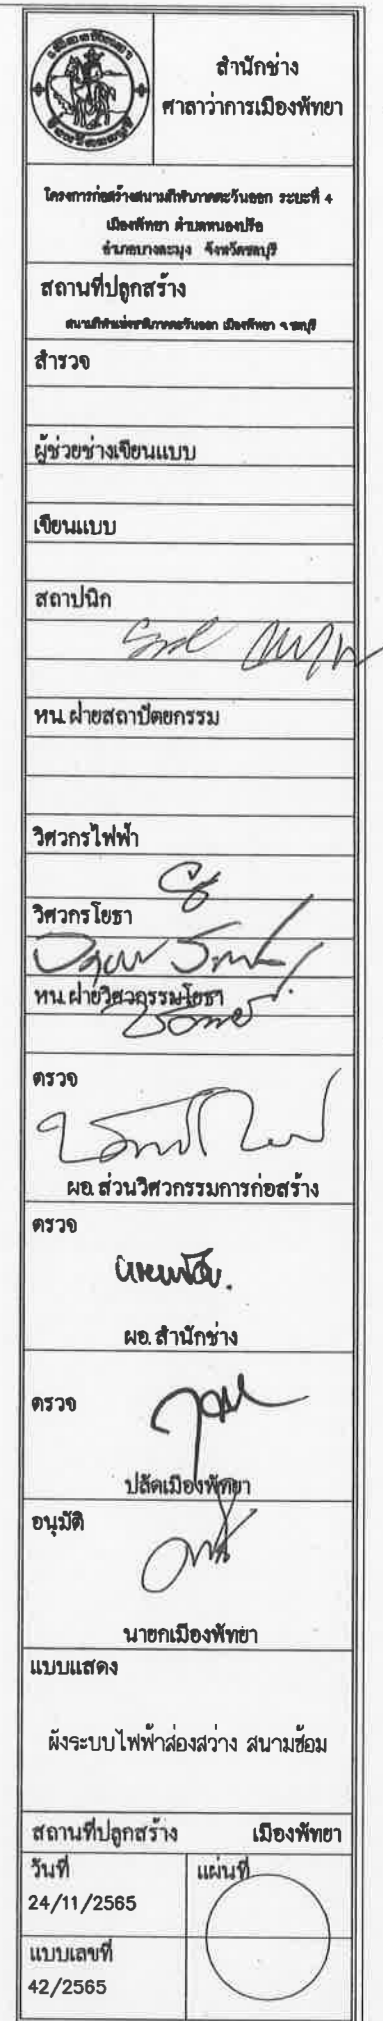 สำนักช่าง
ศาลาว่าการเมืองพัทยา
โครงการก่อสร้างสนามกีฬาภาคตะวันออก ระยะที่ 4
เมืองพัทยา ตำบลหนองปรือ
อำเภอบางละมุง จังหวัดชลบุรี
สถานที่ปลูกสร้าง
สนามกีฬาแห่งชาติภาคตะวันออก เมืองพัทยา จ.ชลบุรี
สำรวจ
ผู้ช่วยช่างเขียนแบบ
เขียนแบบ
สถาปนิก
หน.ฝ่ายสถาปัตยกรรม
วิศวกรไฟฟ้า
วิศวกรโยธา
หน.ฝ่ายวิศวกรรมโยธา
ตรวจ
ผอ.ส่วนวิศวกรรมการก่อสร้าง
ตรวจ
ผอ.สำนักช่าง
ตรวจ
ปลัดเมืองพัทยา
อนุมัติ
นายกเมืองพัทยา
แบบแสดง
ผังระบบไฟฟ้าส่องสว่าง สนามซ้อม
สถานที่ปลูกสร้าง เมืองพัทยา
วันที่ แผ่นที่
24/11/2565
แบบเลขที่
42/2565